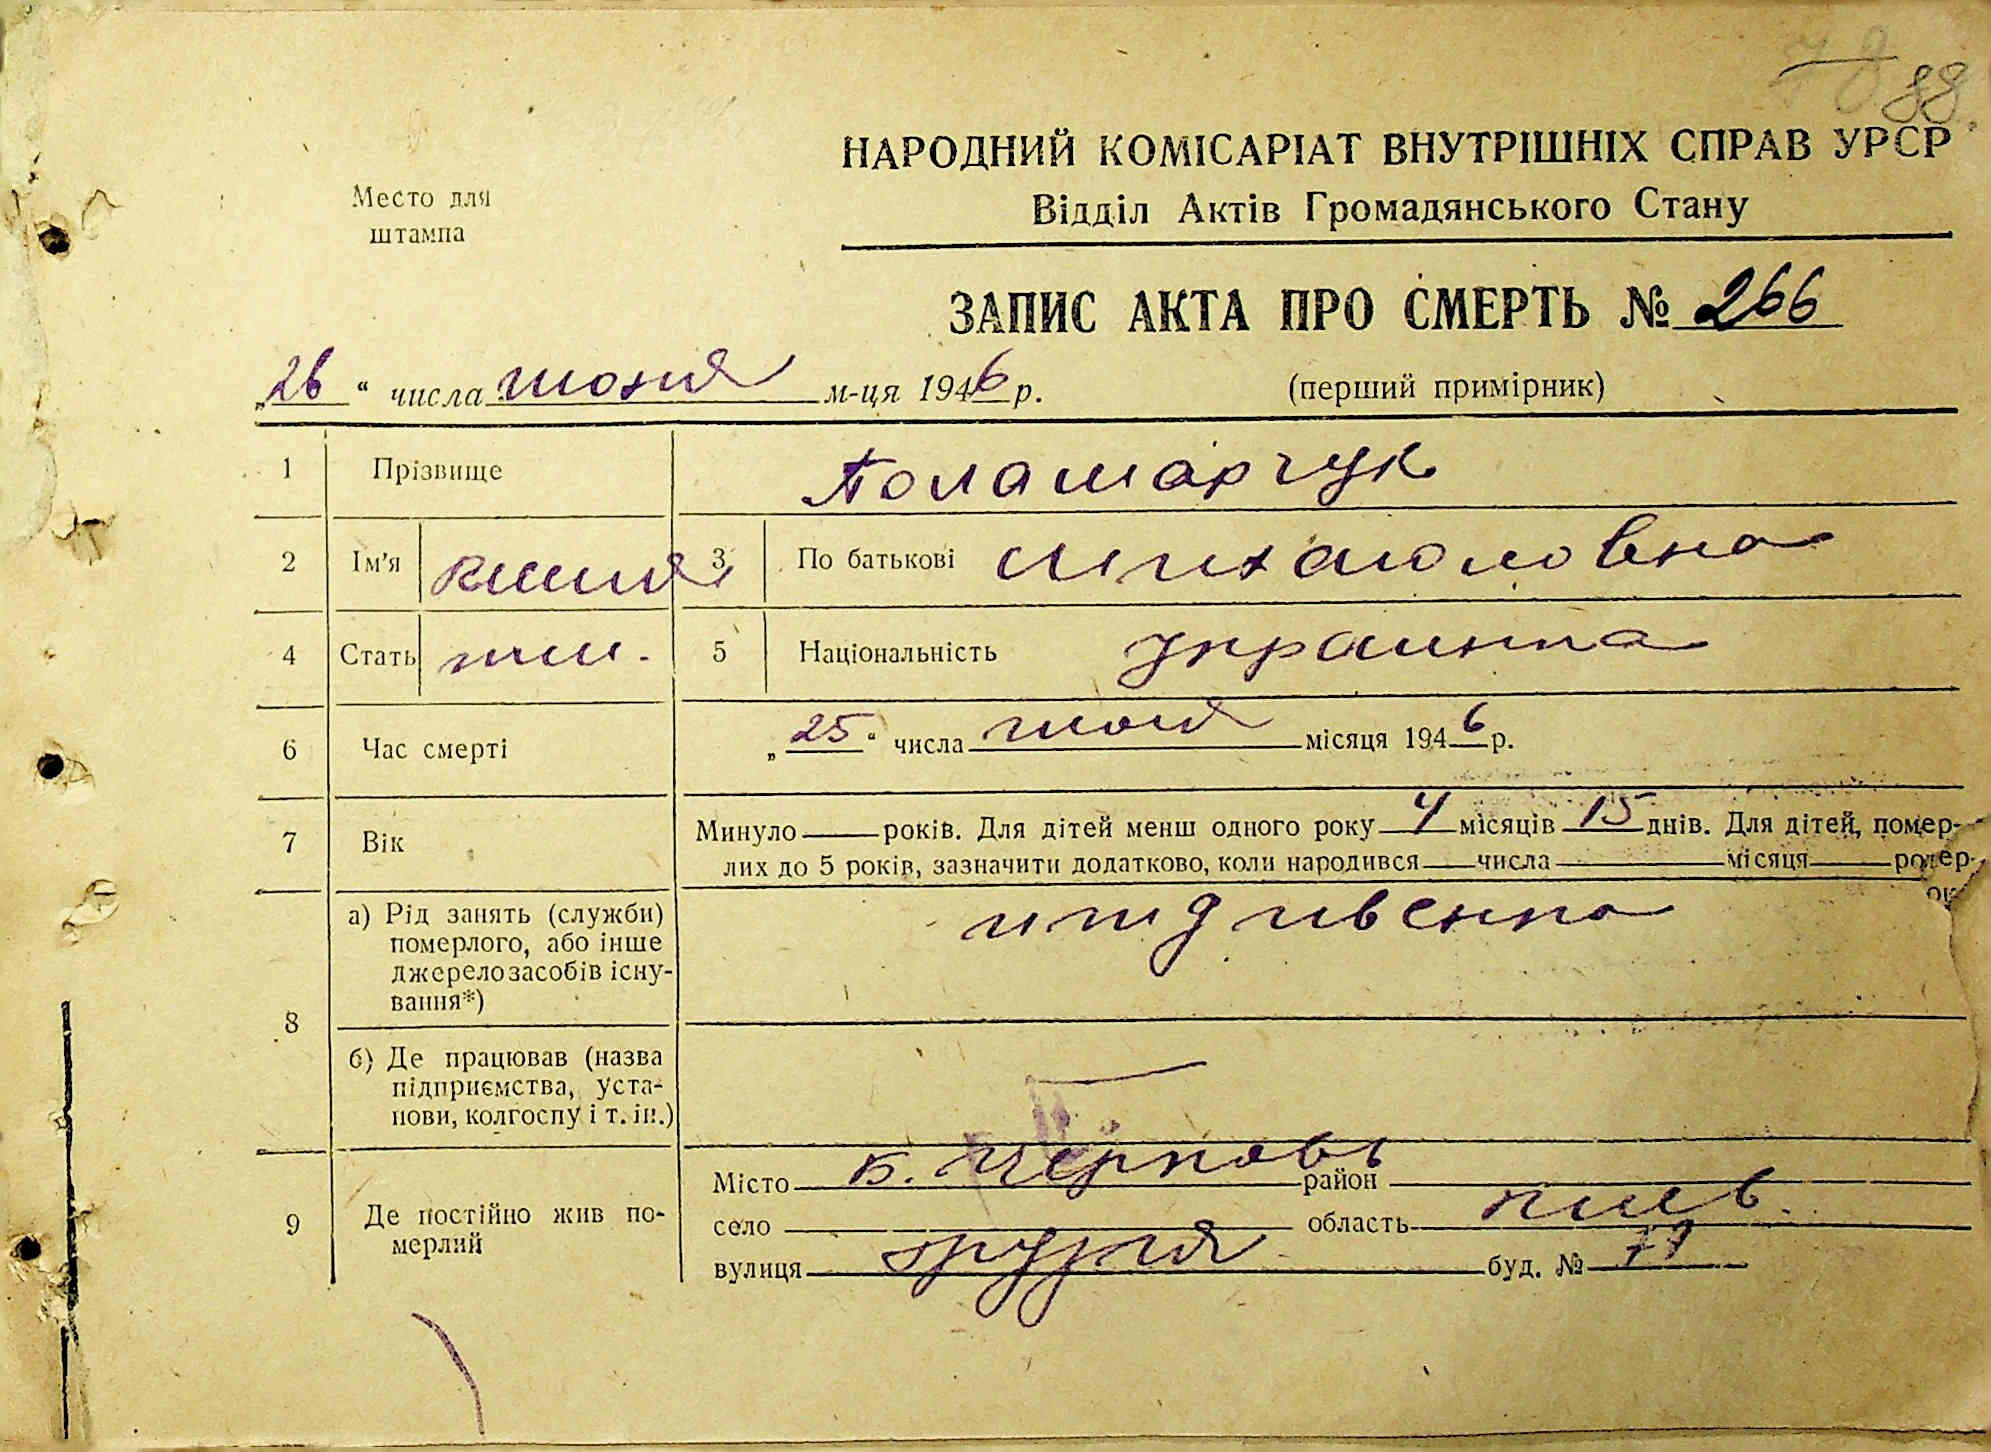 78 88.
НАРОДНИЙ КОМІСАРІАТ ВНУТРІШНІХ СПРАВ УРСР
Место для штампа
Відділ Актів Громадянського Стану
ЗАПИС АКТА ПРО СМЕРТЬ № 266
„26“ числа июня м-ця 1946 р. (перший примірник)
1 Прізвище Паламарчук
2 Ім'я 3 По батькові Михайловна
4 Стать жен. 5 Національність Украинка
6 Час смерті „25“ числа июня місяця 1946 р.
7 Вік Минуло років. Для дітей менш одного року 4 місяців 15 днів. Для дітей, помер-
лих до 5 років, зазначити додатково, коли народився числа місяця
8 а) Рід занять (служби) померлого, або інше джерело засобів існу-вання*) иждивенка
б) Де працював (назва підприємства, уста-нови, колгоспу і т. ін.)
9 Де постійно жив по-мерлий
Місто Б. Церковь район
село область Киев.
вулиця буд. №